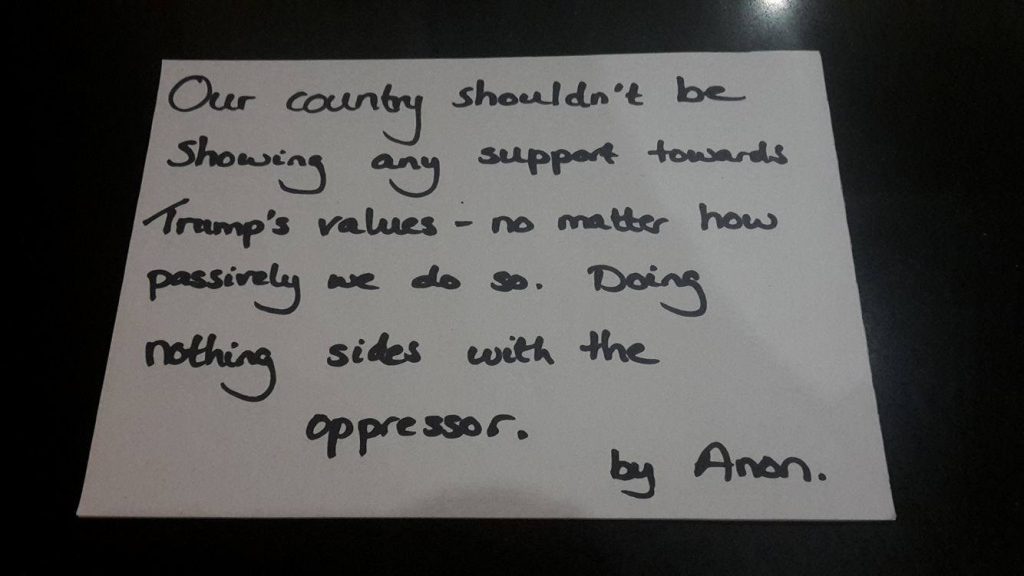 Our country shouldn't be
showing any support towards
Trump's values - no matter how
passively we do so. Doing
nothing sides with the
oppressor.
by Anon.